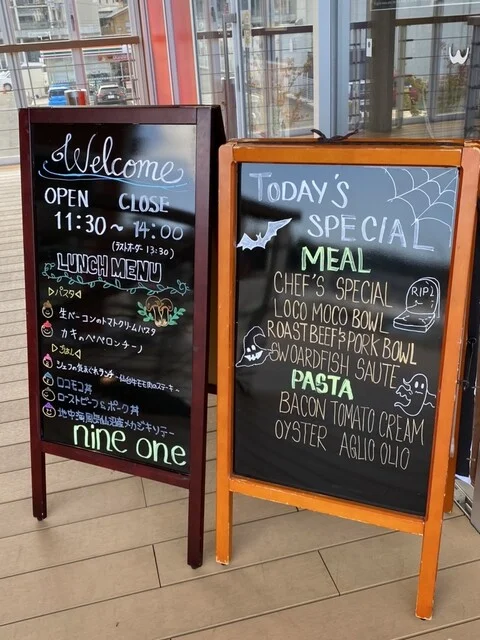 Welcome
OPEN CLOSE
11:30~14:00
(ラストオーダー13:30)
LUNCH MENU
▷パスタ◁
生ベーコンのトマトクリームパスタ
カキのペペロンチーノ
▷ごはん◁
シェフの気まぐれランチ
ロコモコ丼
ローストビーフ&ポーク丼
地中海風気仙沼産メカジキソテー
nine one
TODAY'S
SPECIAL
MEAL
CHEF'S SPECIAL
LOCO MOCO BOWL
ROAST BEEF&PORK BOWL
SWOARDFISH SAUTE
PASTA
BACON TOMATO CREAM
OYSTER AGLIO OLIO
RIP